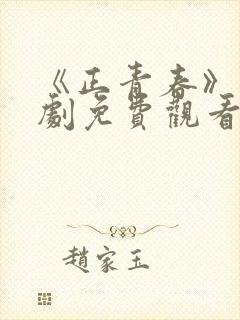 《正青春》
劇免費觀看
趙家玉